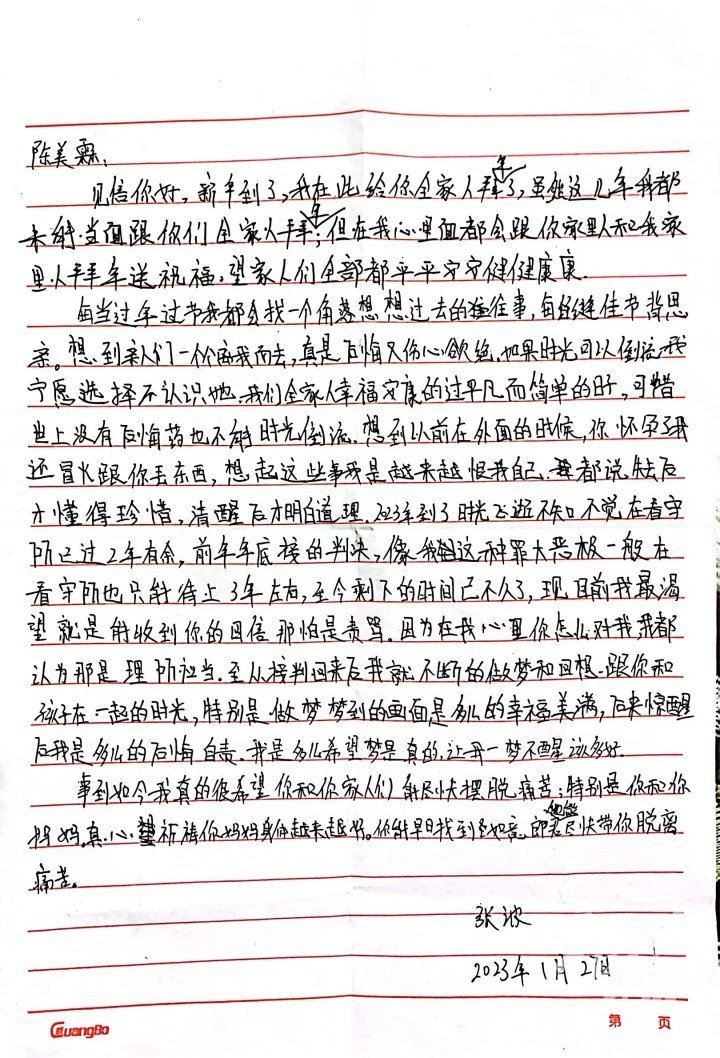 陈美霖:
见信你好。新年到了,我在此给你全家人拜年了,虽然这几年我都
未能当面跟你们全家人拜年;但在我心里面都会跟你家里人和我家
里人拜年送祝福,望家人们全部都平平安安健健康康.
每当过年过节我都会找一个角落想想过去的往事,每逢佳节背思
亲。想到亲人们一个个离我而去,真是后悔又伤心欲绝.如果时光可以倒流我
宁愿选择不认识她.我们全家人幸福安康的过平凡而简单的日子,可惜
世上没有后悔药也不能时光倒流.想到以前在外面的时候,你怀孕了我
还冒火跟你丢东西,想起这些事我是越来越恨我自己.都说失去后
才懂得珍惜,清醒后才明白道理.2023年到了时光飞逝不知不觉在看守
所已过2年有余,前年年底接的判决,像我这种罪大恶极一般在
看守所也只能待上3年左右,至今剩下的时间已不久了,现目前我最渴
望就是能收到你的回信那怕是责骂.因为在我心里你怎么对我我都
认为那是理所应当.至从接判回来后我就不断的做梦和回想.跟你和
孩子在一起的时光,特别是做梦梦到的画面是多么的幸福美满,后来惊醒
后我是多么的后悔自责.我是多么希望梦是真的.让我一梦不醒该多好.
事到如今我真的很希望你和你家人们能尽快摆脱痛苦;特别是你和你
妈妈.真心祈祷你妈妈身体越来越好。你能早日找到如意郎君他能尽快带你脱离
痛苦。
张波
2023年1月27日
GuangBo
第 页